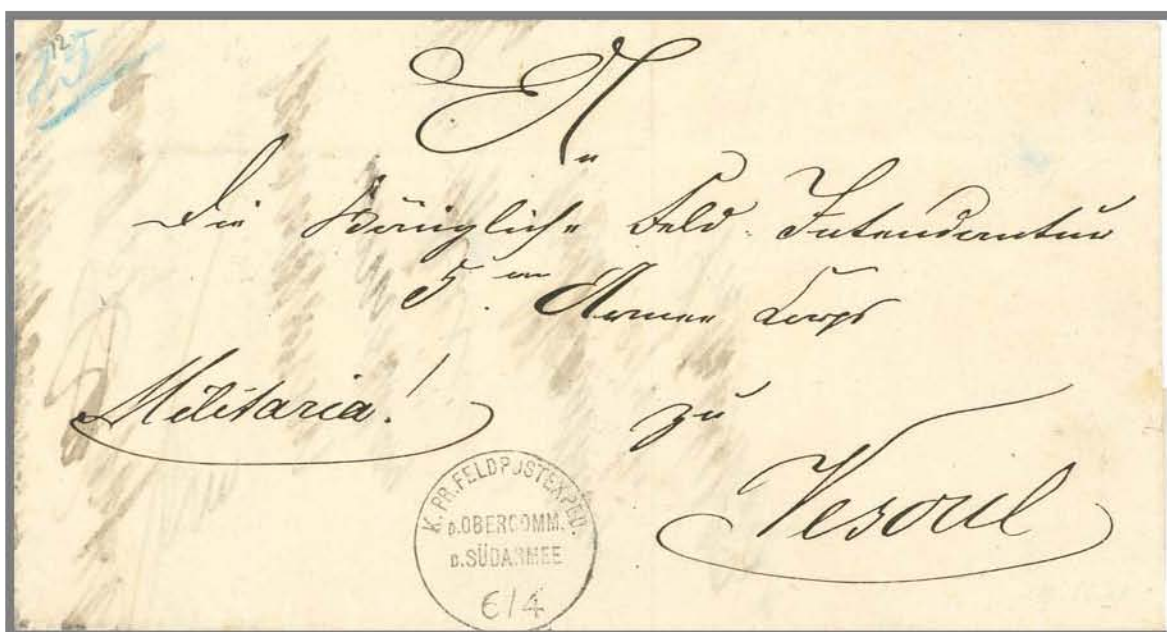 12
25
An
die Königliche Feld-Intendantur
5ten Armee Corps
Militaria!
zu
Vesoul
K. PR. FELDPOSTEXPED.
D. OBERCOMM.
D. SÜDARMEE
6/4